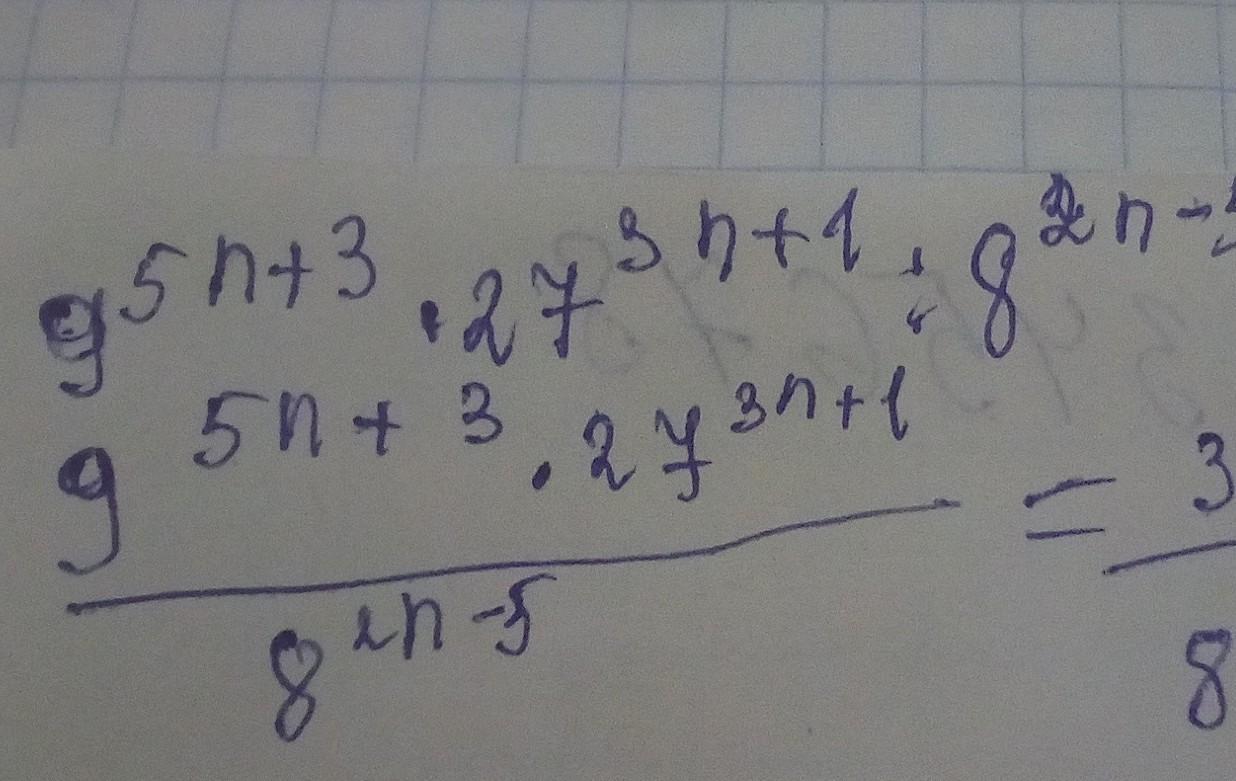 9^{5n+3} · 27^{3n+1} : 8^{2n-5}
\frac{9^{5n+3} · 27^{3n+1}}{8^{2n-5}} = \frac{3}{8}